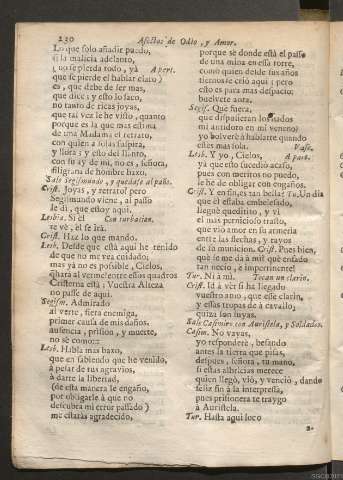 230 Afectos de Odio, y Amor.
Lo que solo añadir puedo,
q̃ la malicia adelanto,
(no se pierda todo, ya Apart.
que se pierde el hablar claro)
es, que debe de ser mas,
que dice; y esto lo saco,
no tanto de ricas joyas,
que tal vez le he visto, quanto
porque es la que mas estima
de una Madama el retrato,
con quien a solas suspira,
y llora; y esto del llanto,
con su ay de mi, no es, señora,
filigrana de hombre baxo.
Sale Segismundo, y quedase al paño.
Crist. Joyas, y retrato? pero
Segismundo viene, al passo
le di, que estoy aqui.
Lesbia. Si el Con turbacion.
te vè, èl se irà.
Crist. Haz lo que mando.
Lesb. Desde que està aqui he tenido
de que no me vea cuidado;
mas yà no es posible, Cielos,
Cristerna està: Vuestra Alteza
no passe de aqui.
Segism. Admirado
al verte, fiera enemiga,
primer causa de mis daños,
ausencia, prision, y muerte,
no sè como::-
Lesb. Habla mas baxo,
que en sabiendo que he venido,
à pesar de tus agravios,
à darte la libertad,
(de esta manera le engaño,
por obligarle à que no
descubra mi error passado)
me estaràs agradecido,
porque sè donde està el passo
de una mina en essa torre,
como quien desde sus años
tiernos se criò aqui; pero
esto es para mas despacio;
buelvete aora.
Segis. Què fuera,
que dispusieran los hados
mi antidoto en mi veneno?
yo bolverè à hablarte quando
estès mas sola. Vase.
Lesb. Y yo, Cielos, A part.
ya que esto sucediò acaso,
pues con meritos no puedo,
le he de obligar con engaños.
Crist. Y en fin, es tan bella? Tu. Un dia
que el estaba embelesado,
lleguè queditito, y vi
el mas pernicioso trasto,
que viò amor en su armeria
entre las flechas, y rayos
de su municion. Crist. Pues bien,
què se me dà à mi? què ensado
tan necio, è impertinente!
Tur. Ni à mi. Tocan un clarin.
Crist. Id à vèr si ha llegado
vuestro amo, que esse clarin,
y essas tropas de à cavallo,
quizà son suyas.
Sale Casimiro con Auristela, y Soldados.
Casim. No vayas,
yo responderè, besando
antes la tierra que pisas,
despues, señora, tu mano,
si estas albricias merece
quien llegò, viò, y venciò, dando
feliz fin à la interpressa,
pues prisionera te traygo
à Auristela.
Tur. Hasta aqui loco